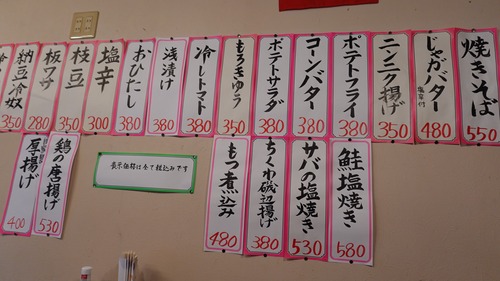 焼きそば
550
じゃがバター
480
ニンニク揚げ
350
ポテトフライ
380
コーンバター
380
ポテトサラダ
380
もろきゅう
350
冷しトマト
380
浅漬け
380
おひたし
380
塩辛
300
枝豆
350
板ワサ
280
納豆冷奴
350
鮭塩焼き
580
サバの塩焼き
530
ちくわ磯辺揚げ
380
もつ煮込み
480
表示価格は全て税込みです
鶏の唐揚げ
530
厚揚げ
400